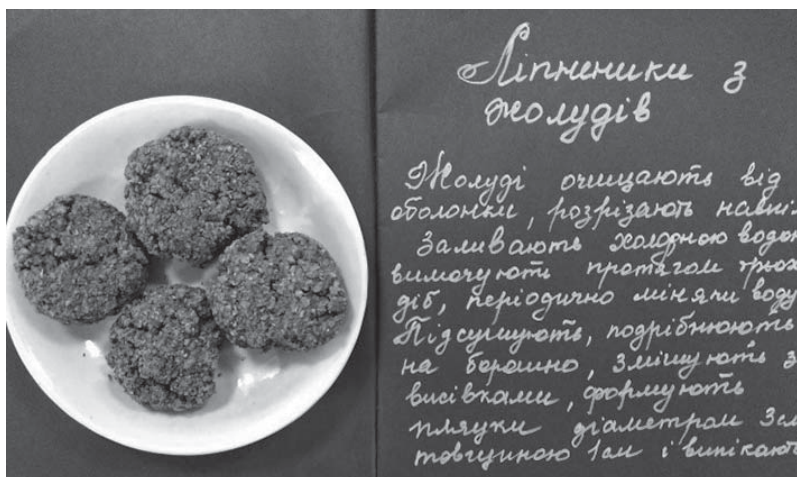 Ліпненики з
жолудів
Жолуді очищають від
оболонки, розрізають навпіл
Заливають холодною водою
вимочують протягом трьох
діб, періодично міняли воду
Підсушують, подрібнюють
на борошно, змішують з
висівками, формують
пляцки діаметром 3 см
товщиною 1 см і випікають